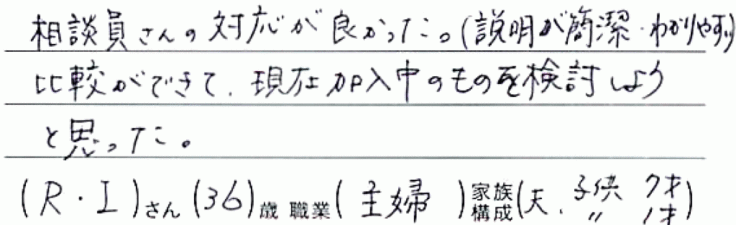 相談員さんの対応が良かった。(説明が簡潔・わかりやすい)
比較ができて、現在加入中のものを検討しよう
と思った。
(R・I)さん(36)歳 職業(主婦)家族構成(夫、子供 7才
〃 1才)